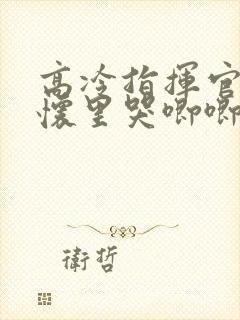 高冷指揮官
懷里哭唧唧
衛哲